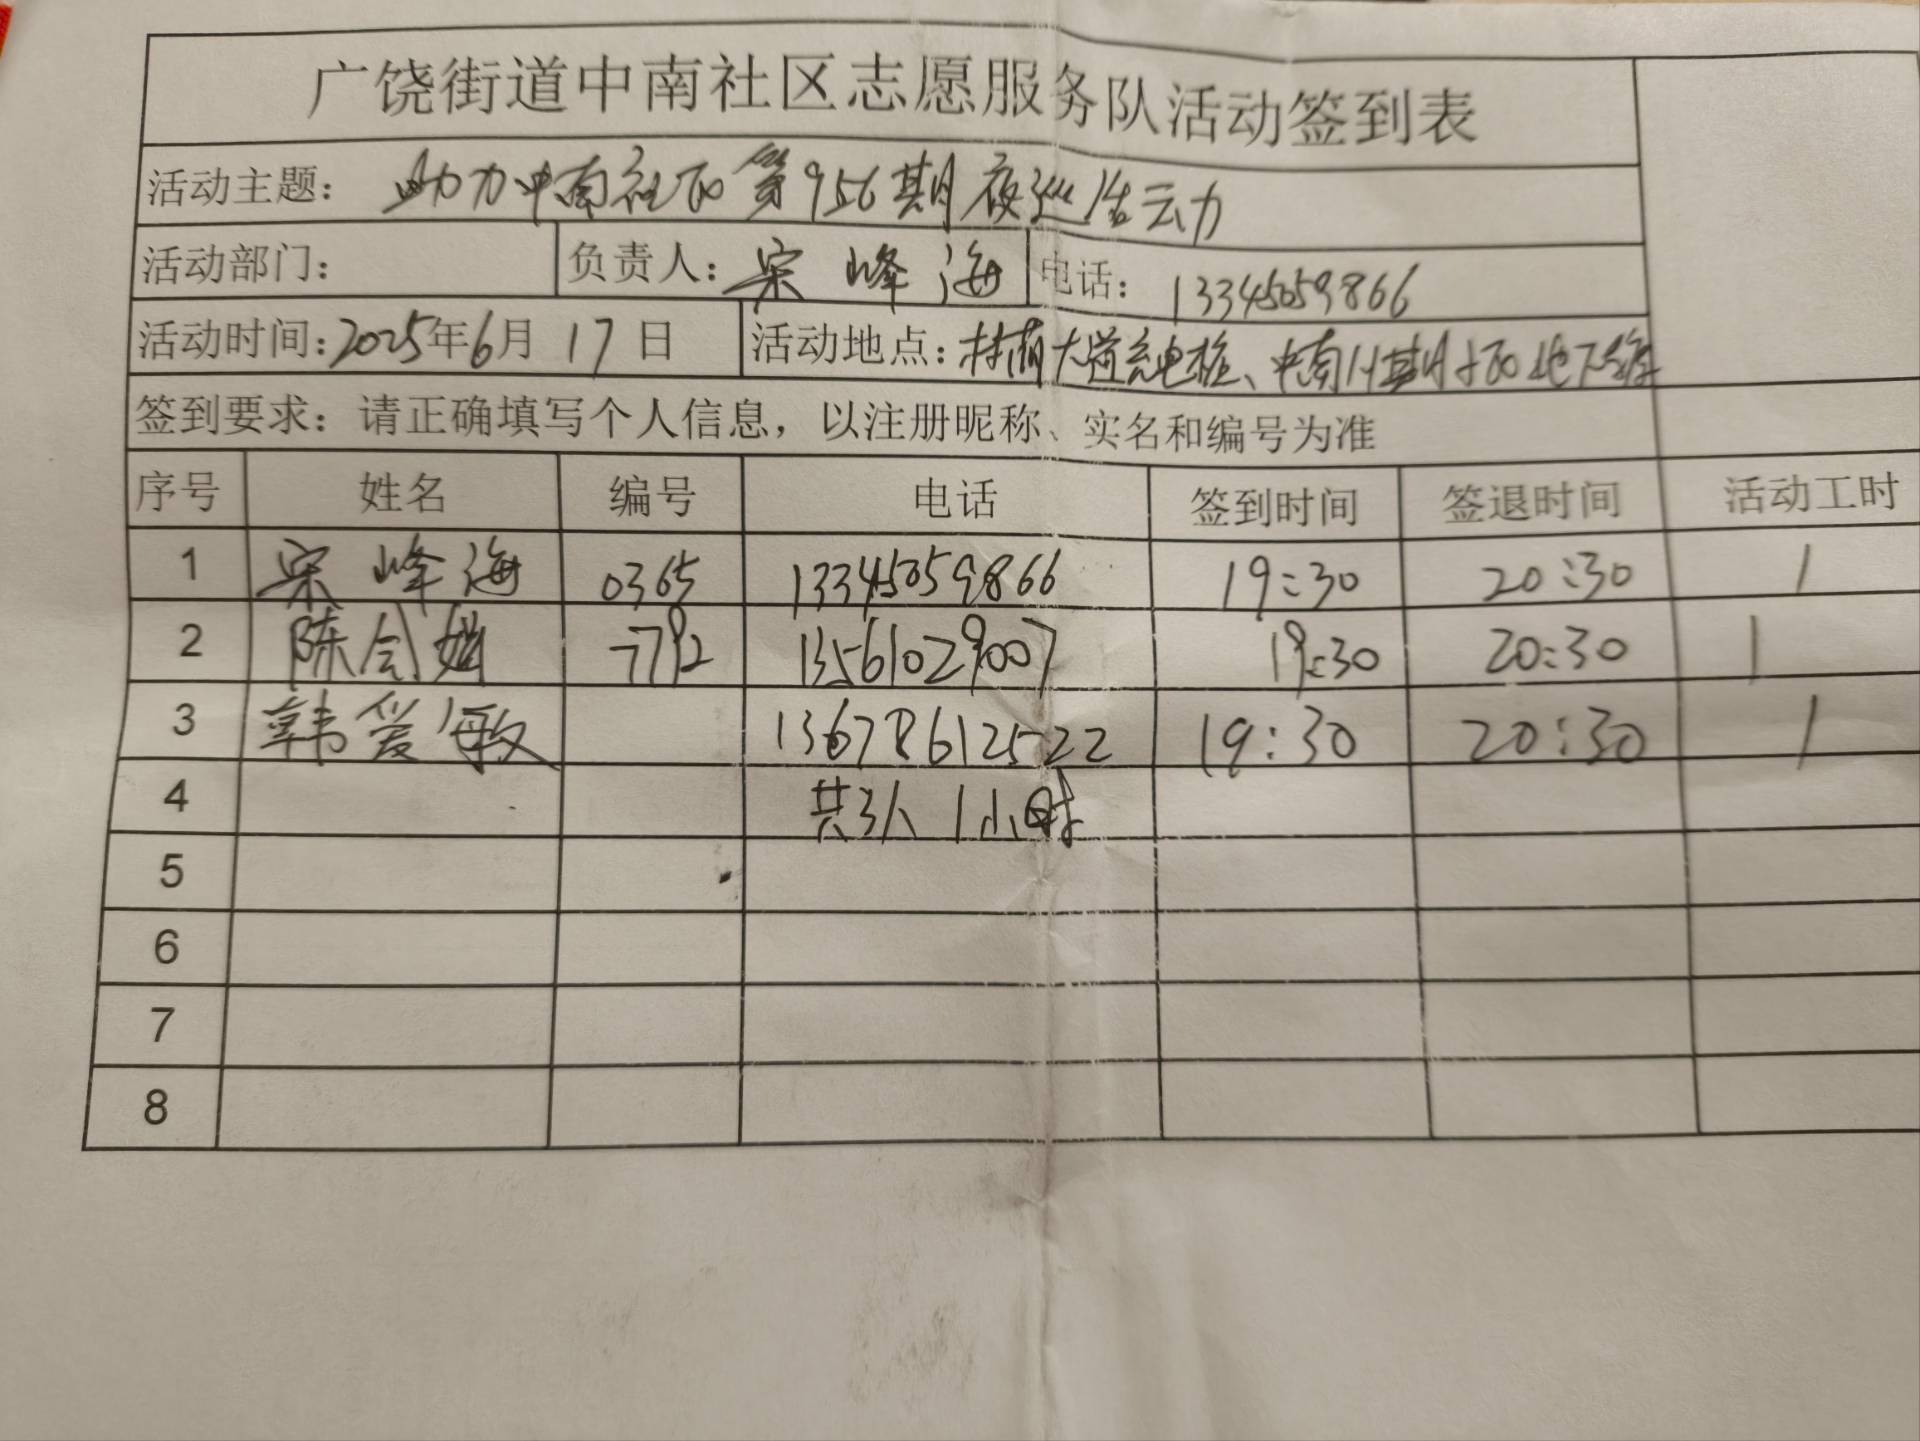 广饶街道中南社区志愿服务队活动签到表
活动主题: 助力中南社区第956期夜巡活动
活动部门: 负责人: 宋峰海 电话: 13345059866
活动时间: 2025年6月17日 活动地点: 林荫大道充电桩、中南八期小区地下
签到要求: 请正确填写个人信息，以注册昵称、实名和编号为准
序号 姓名 编号 电话 签到时间 签退时间 活动工时
1 宋峰海 0365 13345059866 19:30 20:30 1
2 陈会 7792 13561029007 19:30 20:30 1
3 韩爱敏 13678612522 19:30 20:30 1
4 共3人 1小时
5
6
7
8